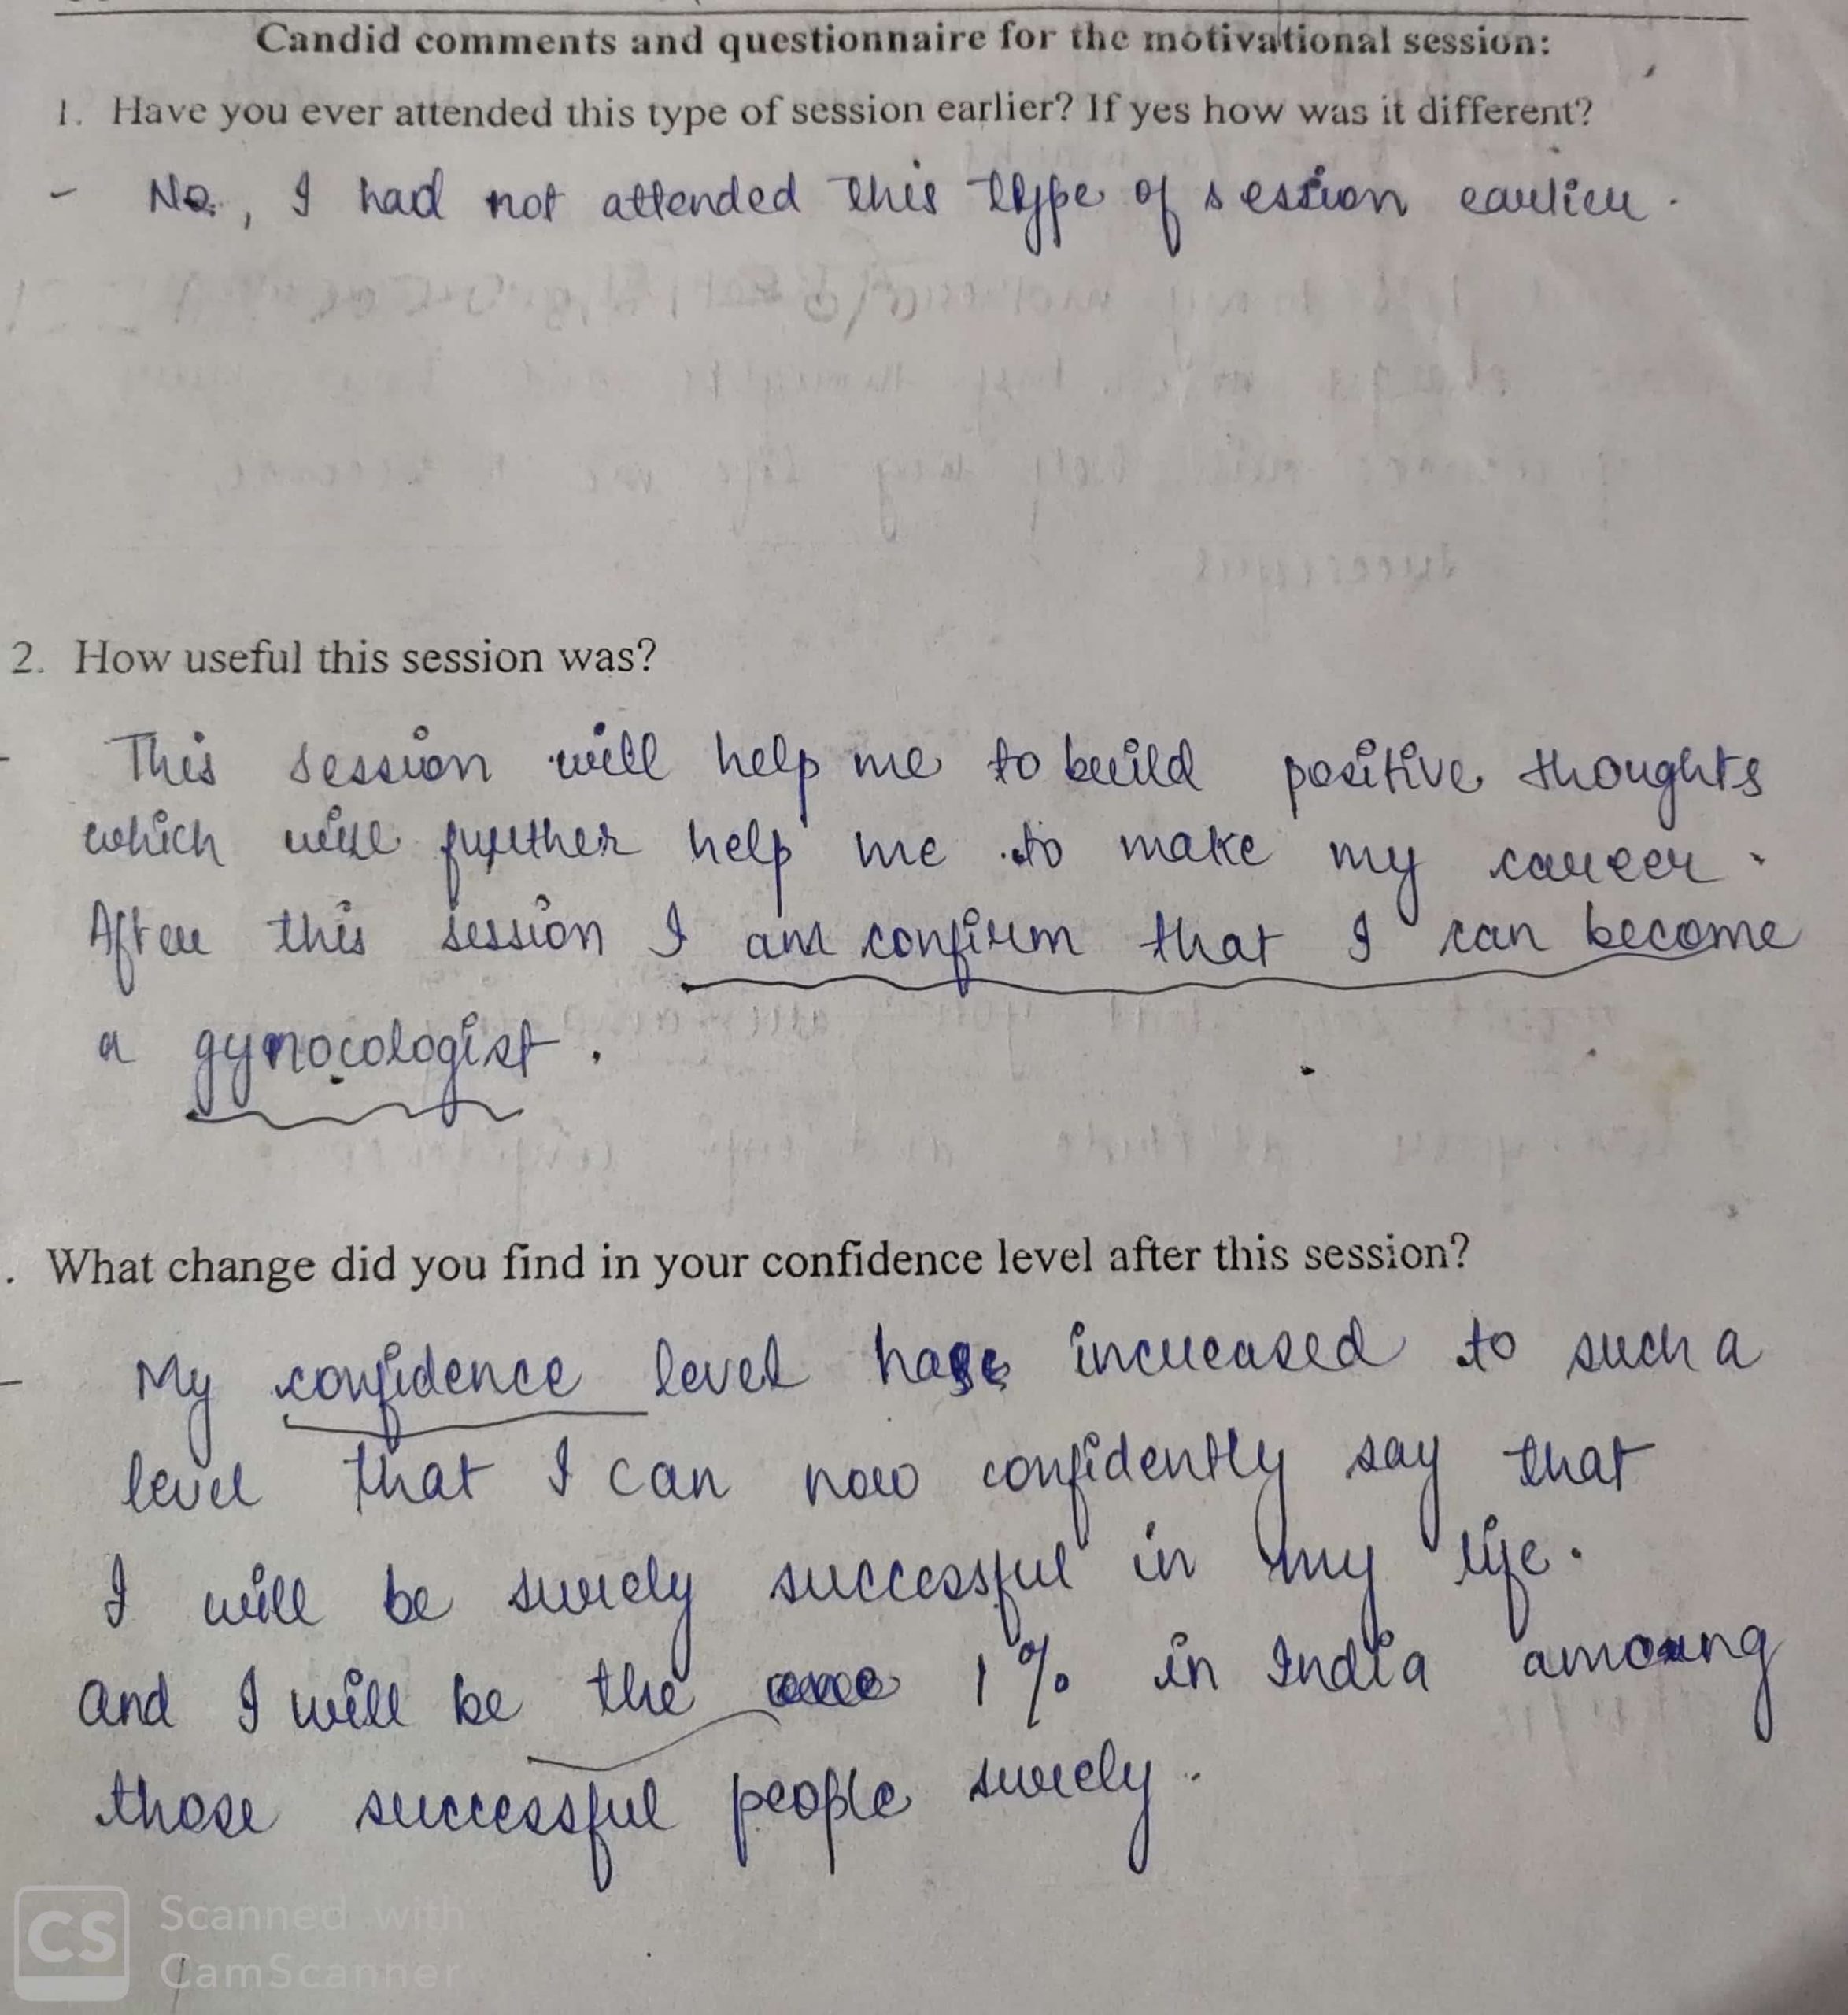 Candid comments and questionnaire for the motivational session:
1. Have you ever attended this type of session earlier? If yes how was it different?
- No, I had not attended this type of session earlier.
2. How useful this session was?
- This session will help me to build positive thoughts
which will further help me to make my career.
After this session I am confirm that I can become
a gynocologist.
. What change did you find in your confidence level after this session?
- My confidence level has increased to such a
level that I can now confidently say that
I will be surely successful in my life.
and I will be the 1% in India among
those successful people surely.
CS Scanned with
CamScanner